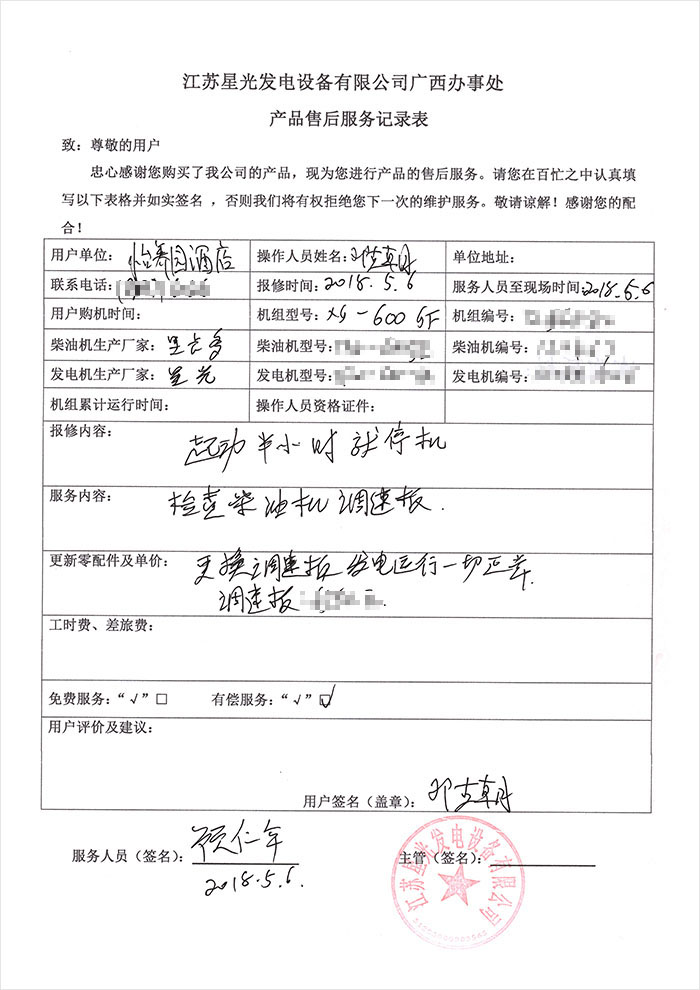 江苏星光发电设备有限公司广西办事处
产品售后服务记录表
致：尊敬的用户
忠心感谢您购买了我公司的产品，现为您进行产品的售后服务。请您在百忙之中认真填
写以下表格并如实签名 ，否则我们将有权拒绝您下一次的维护服务。敬请谅解！感谢您的配
合！
用户单位： 怡景园酒店 操作人员姓名： 单位地址：
联系电话： 报修时间：2018.5.6 服务人员至现场时间：2018.5.6
用户购机时间： 机组型号：XG-600GF 机组编号：
柴油机生产厂家： 柴油机型号： 柴油机编号：
发电机生产厂家：星光 发电机型号： 发电机编号：
机组累计运行时间： 操作人员资格证件：
报修内容：
起动半小时就停机
服务内容：
检查柴油机调速板.
更新零配件及单价： 更换调速板 发电运行一切正常.
调速板
工时费、差旅费：
免费服务：“√”□ 有偿服务：“√”☑
用户评价及建议：
用户签名（盖章）：
服务人员（签名）： 顾仁年 主管（签名）：
2018.5.6.
江苏星光发电设备有限公司